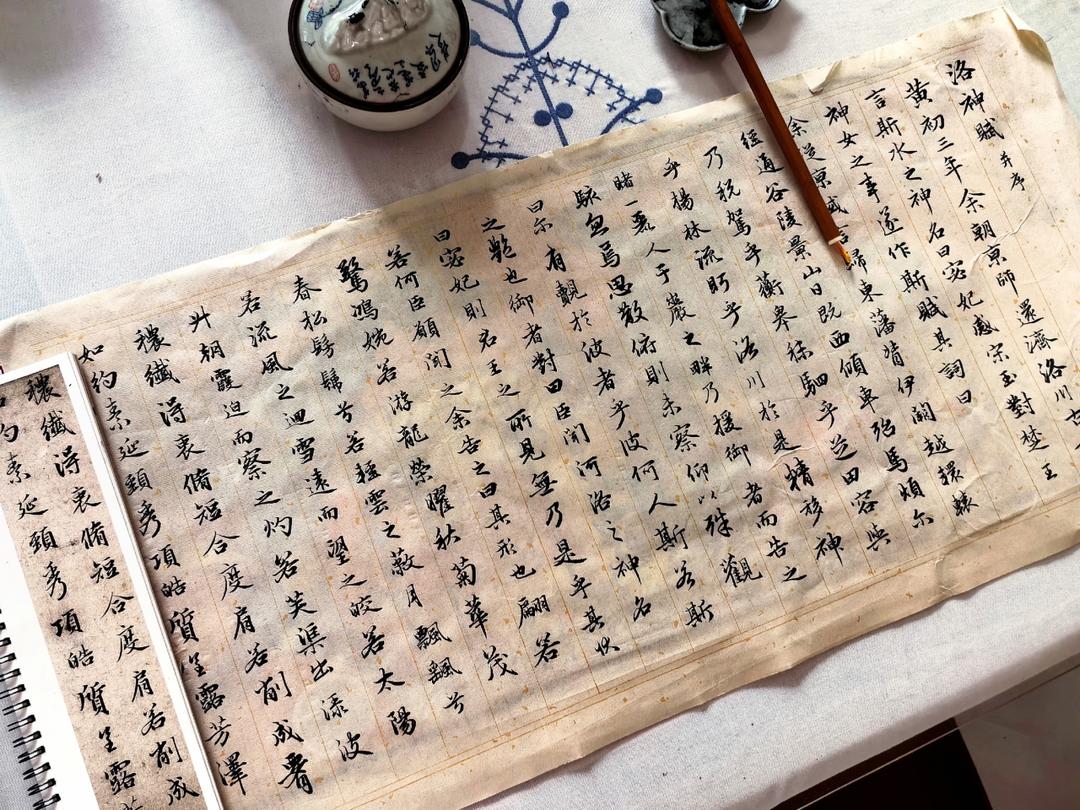 洛神賦 并序
黃初三年余朝京師還濟洛川古
言斯水之神名曰宓妃感宗玉對楚王
神女之事遂作斯賦其詞曰
余從京域言歸東藩背伊闕越轘轅
經通谷陵景山日既西傾車殆馬煩尔
乃稅駕乎蘅皋秣駟乎芝田容與
乎楊林流眄乎洛川於是精移神
睹一麗人于巖之畔乃援御者而告之
駭忽焉思散俯則未察仰以殊觀
曰尔有覿於彼者乎彼何人斯若斯
之艷也御者對曰臣聞河洛之神名
曰宓妃則君王之所見無乃是乎其狀
若何臣願聞之余告之曰其形也翩若
驚鴻婉若游龍榮曜秋菊華茂
春松髣髴兮若輕雲之蔽月飄飖兮
若流風之迴雪遠而望之皎若太陽
升朝霞迫而察之灼若芙渠出淥波
穠纖得衷脩短合度肩若削成腰
如約素延頸秀項皓質呈露芳澤
穠纖得衷脩短合度肩若削成
約素延頸秀項皓質呈露